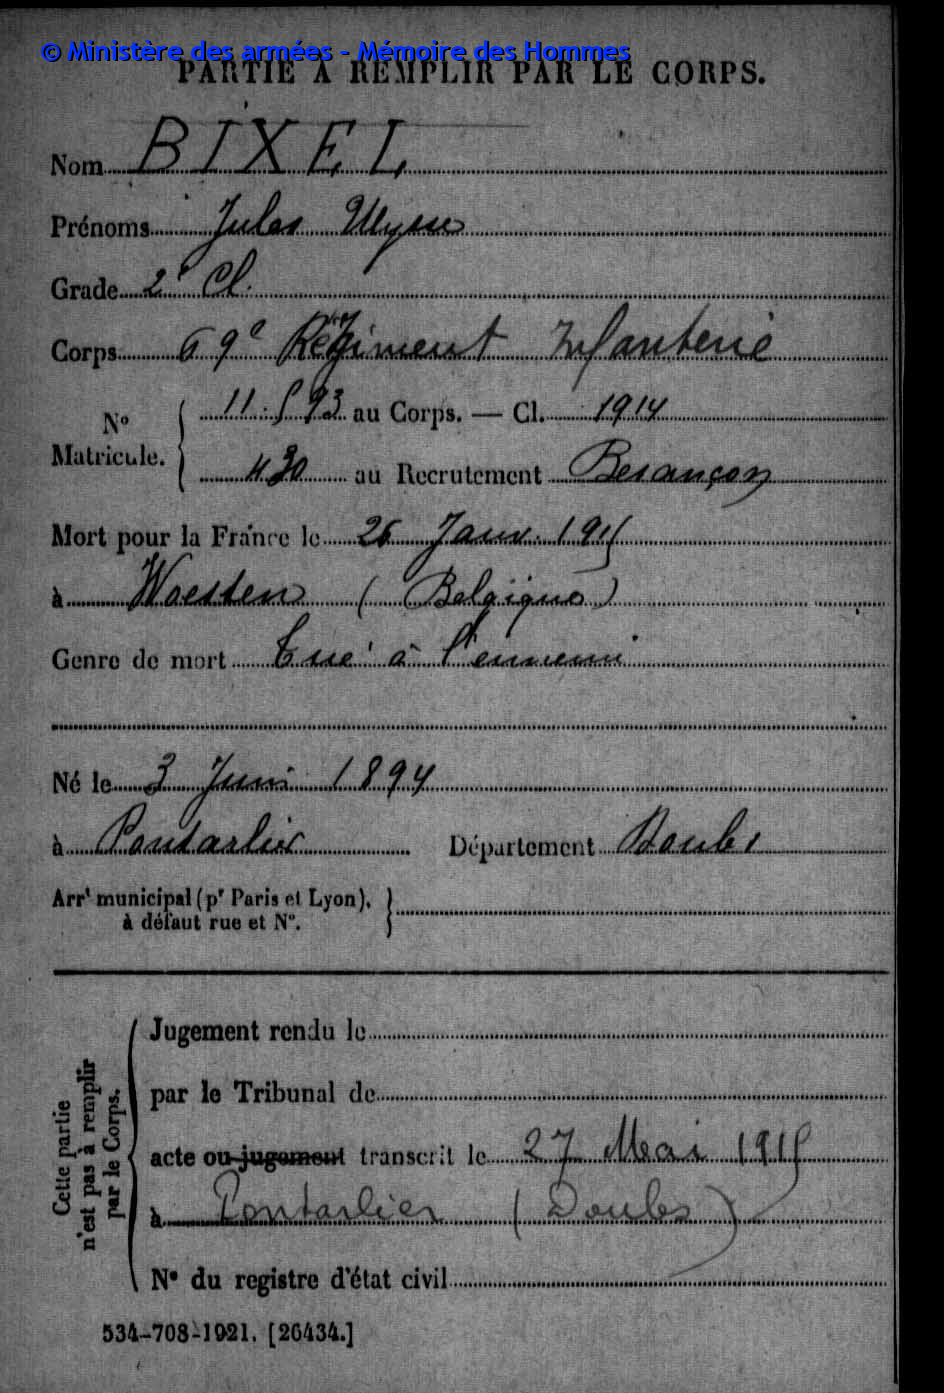 © Ministère des armées - Mémoire des Hommes
PARTIE À REMPLIR PAR LE CORPS.
Nom BIXEL
Prénoms Jules Ulysse
Grade 2e Cl.
Corps 69e Régiment Infanterie
No Matricule. 11.593 au Corps. — Cl. 1914
430 au Recrutement Besançon
Mort pour la France le 26 Janv. 1915
à Woesten (Belgique)
Genre de mort Tué à l'ennemi
Né le 3 Juin 1894
à Pontarlier Département Doubs
Arrt municipal (pr Paris et Lyon),
à défaut rue et No.
Cette partie
n'est pas à remplir
par le Corps.
Jugement rendu le
par le Tribunal de
acte ou jugement transcrit le 27 Mai 1915
à Pontarlier (Doubs)
No du registre d'état civil
534-708-1921. [26434.]